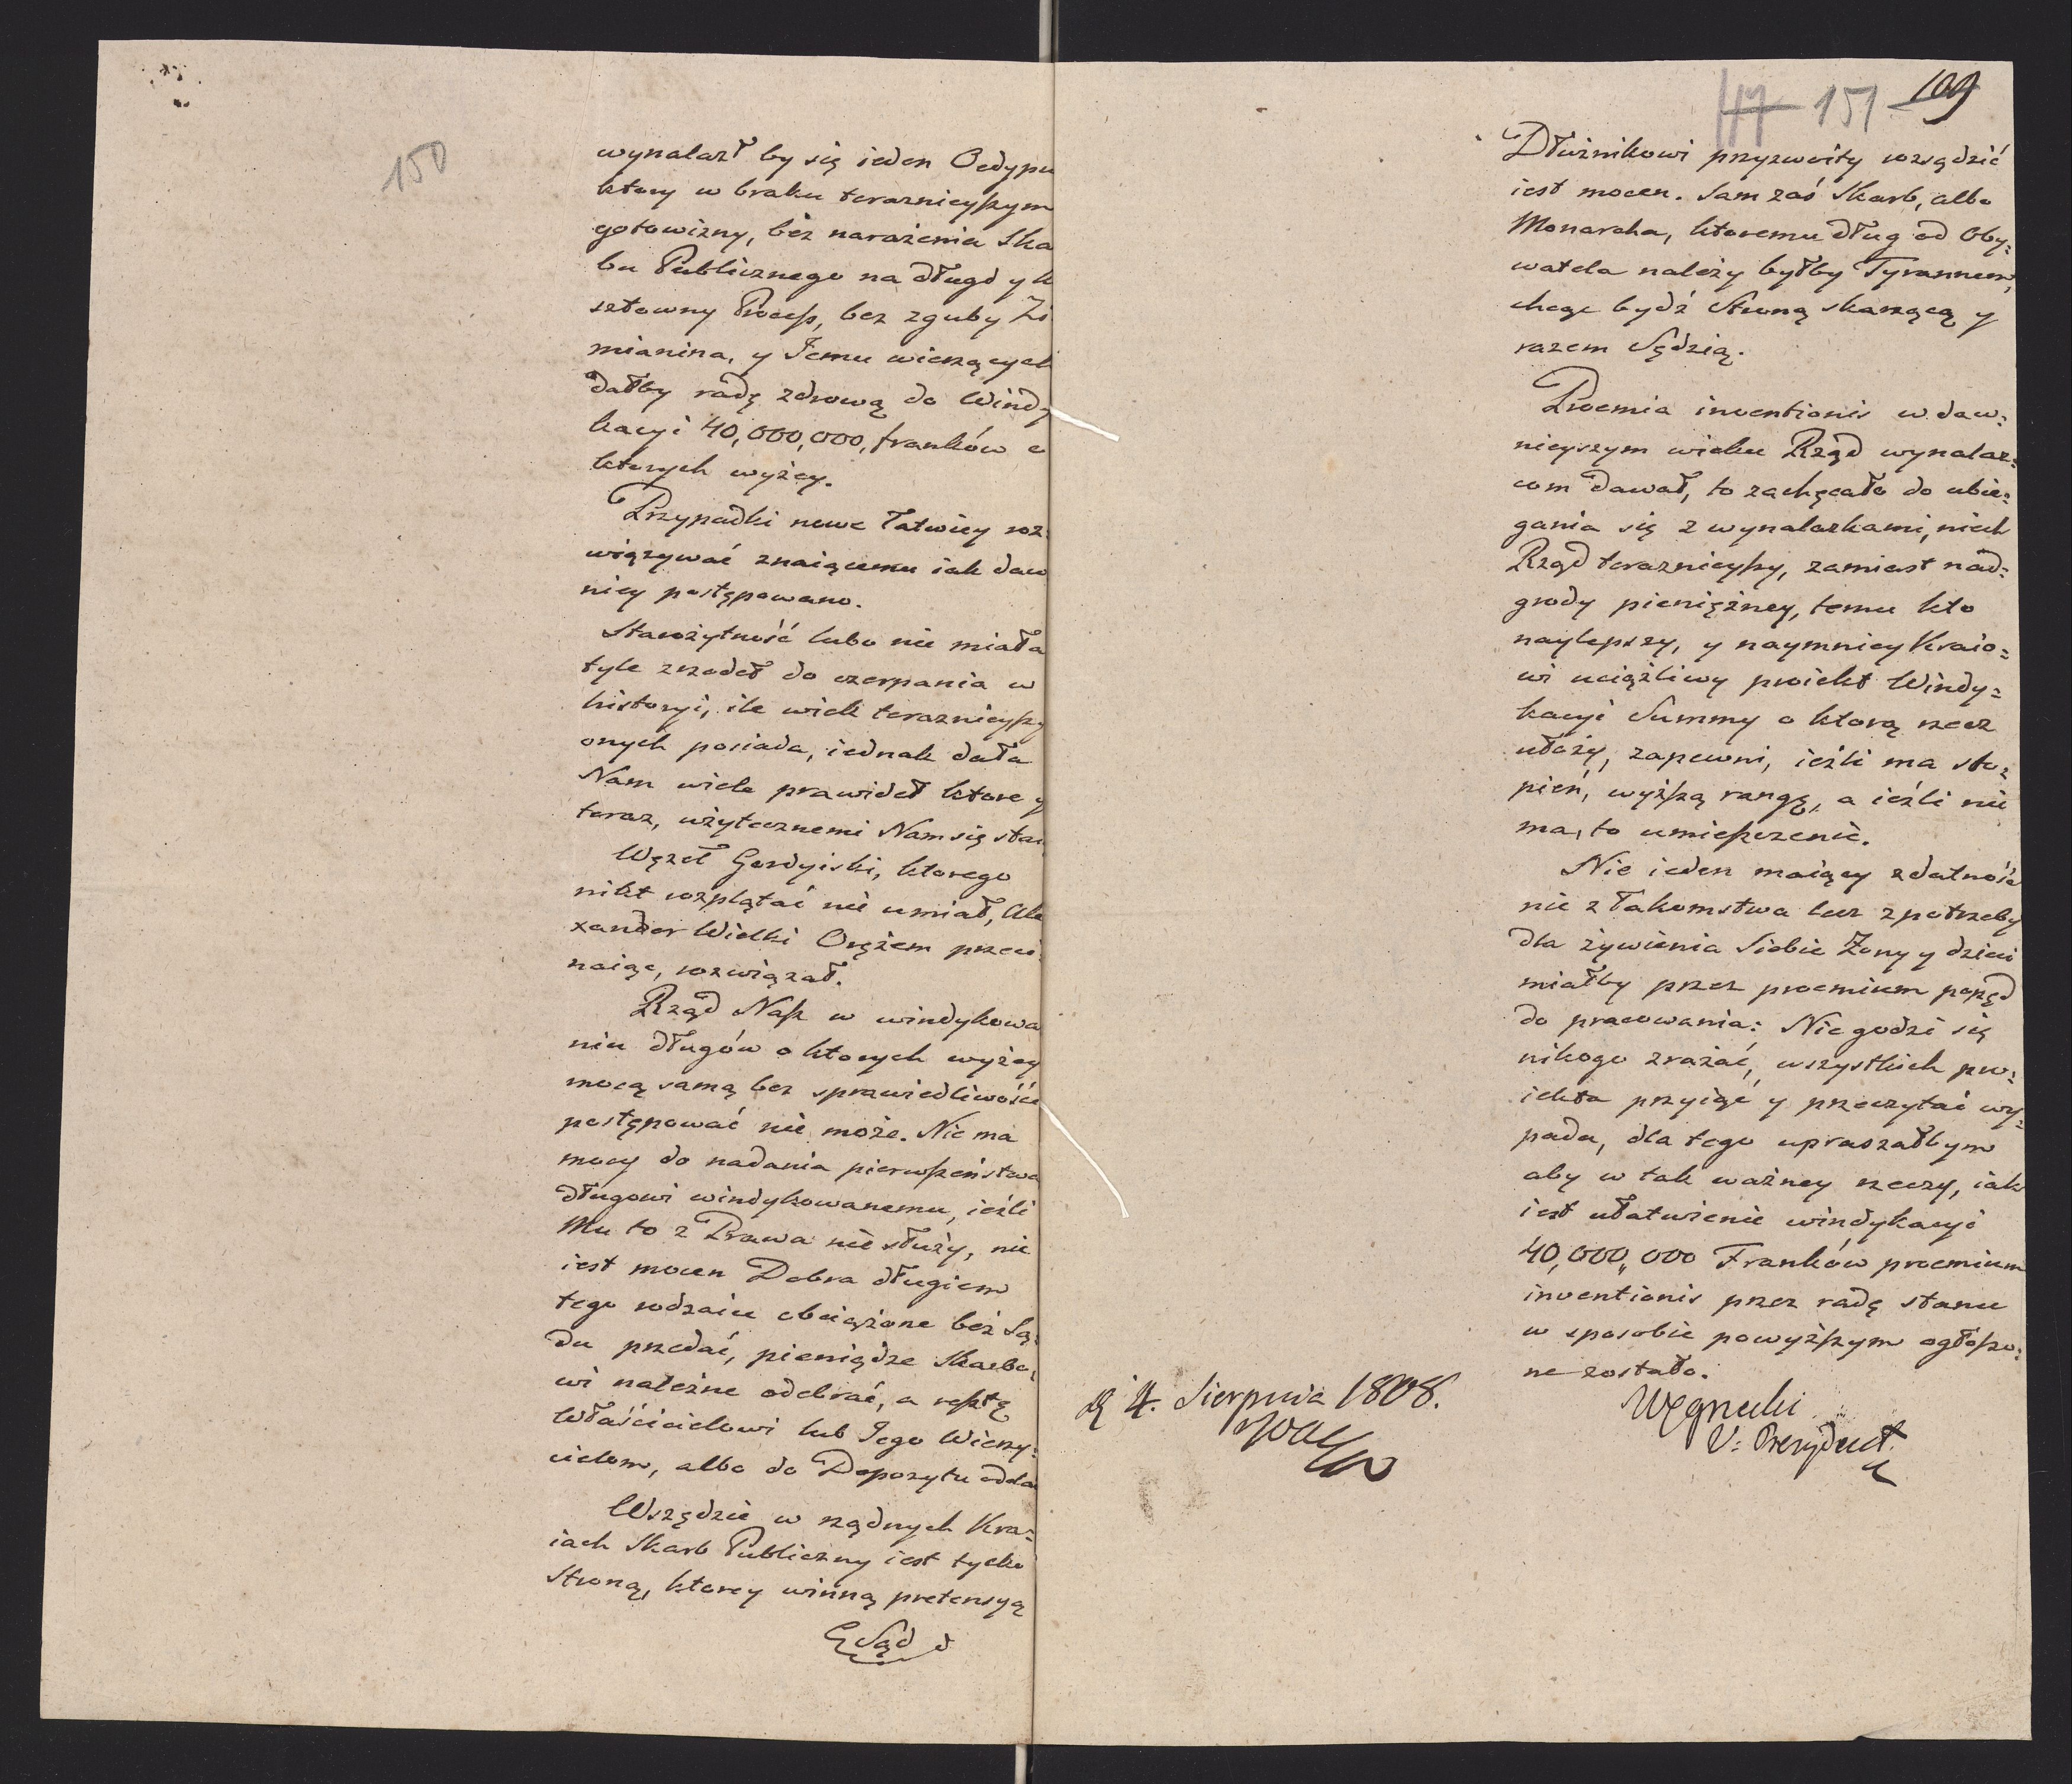 150
wynalazł by się ieden Oedypu
ktory w braku teraznieyszym
gotowizny, bez narażenia Ska
bu Publicznego na długo y k
sztowny Process, bez zguby Zi
mianina, y Jemu wierzących
dałby radę zdrową do Windy
kacyi 40,000,000, franków o
ktorych wyżey.
Przypadki nowe łatwiey roz:
wiązywać znaiącemu iak daw
niey postępowano.
Starożytność lubo nie miała
tyle zrzodeł do czerpania w
historyi, ile wiek teraznieyszy
onych posiada, iednak dała
Nam wiele prawideł ktore y
teraz, użytecznemi Nam się sta
Węzeł Gordyiski, ktorego
nikt rozplątać nie umiał, Ale
xander Wielki Orężem przeci
naiąc, rozwiązał.
Rząd Nasz w windykowa
niu długów o ktorych wyżey
mocą samą bez sprawiedliwości
postępować nie może. Nie ma
mocy do nadania pierwszeństwa
długowi windykowanemu, ieśli
Mu to z Prawa nie służy, nie
iest mocen Dobra długiem
tego rodzaiu obciążone bez Są:
du przedać, pieniądze Skarbo:
wi należne odebrać, a resztę
Właścicielowi lub Jego Wierzy:
cielom, albo do Depozytu odda
Wszędzie w rządnych Kra:
iach Skarb Publiczny iest tylko
Stroną, ktorey winną pretensyą
Sąd
117 151 109
Dłużnikowi przyzwoity rozsądzić
iest mocen. Sam zaś Skarb, albo
Monarcha, ktoremu dług od Oby:
watela należy byłby Tyrannem,
chcąc bydź Stroną skarzącą y
razem Sędzią.
Proemia inventionis w daw:
nieyszym wieku Rząd wynalaz:
com dawał, to zachęcało do ubie:
gania się z wynalazkami, niech
Rząd teraznieyszy, zamiast nad:
grody pieniężney, temu kto
naylepszy, y naymniey Kraio:
wi uciążliwy proiekt Windy:
kacyi Summy o ktorą rzecz
ułoży, zapewni, ieżli ma sto:
pień, wyższą rangę, a ieżli nie
ma, to umieszczenie.
Nie ieden maiący zdatność
nie z łakomstwa lecz z potrzeby
dla żywienia Siebie Żony y dzieci
miałby przez proemium popęd
do pracowania: Nie godzi się
nikogo zrażać, wszystkich pro:
iekta przyiąć y przeczytać wy:
pada, dla tego upraszałbym
aby w tak ważney rzeczy, iak
iest ułatwienie windykacyi
40,000,000 Franków proemium
inventionis przez radę stanu
w sposobie powyższym ogłoszo:
ne zostało.
Węgrzecki
V: Prezydent
d 4. Sierpnia 1808.